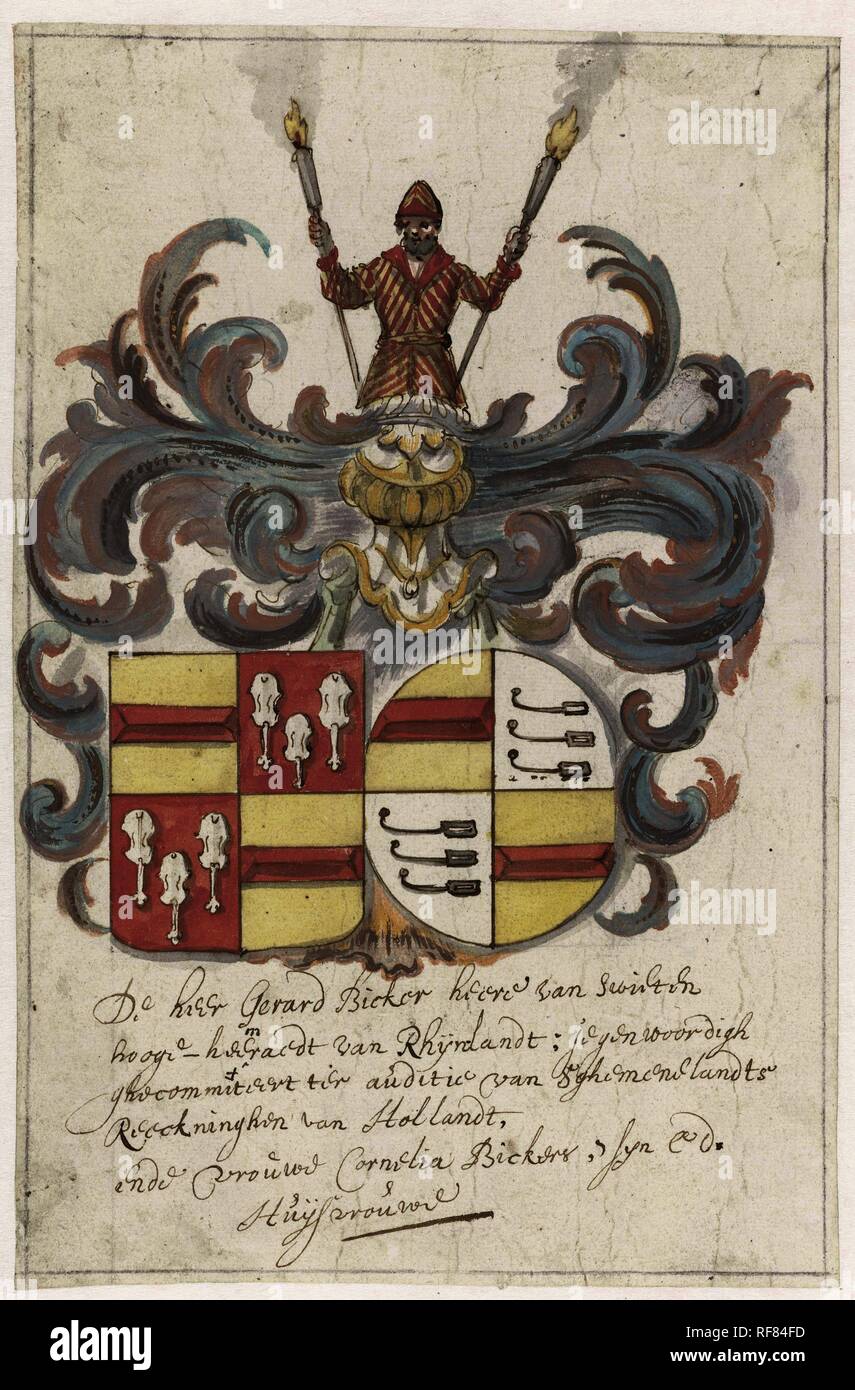 De heer Gerard Bicker heere van Swieten
hooge-heemraedt van Rhijnlandt; jegenwoordigh
ghecommitteert ter auditie van 's ghemenelandts
Reeckninghen van Hollandt,
ende vrouwe Cornelia Bickers, syn Ed.
Huijsvrouwe
alamy
Image ID: RF84FD
www.alamy.com